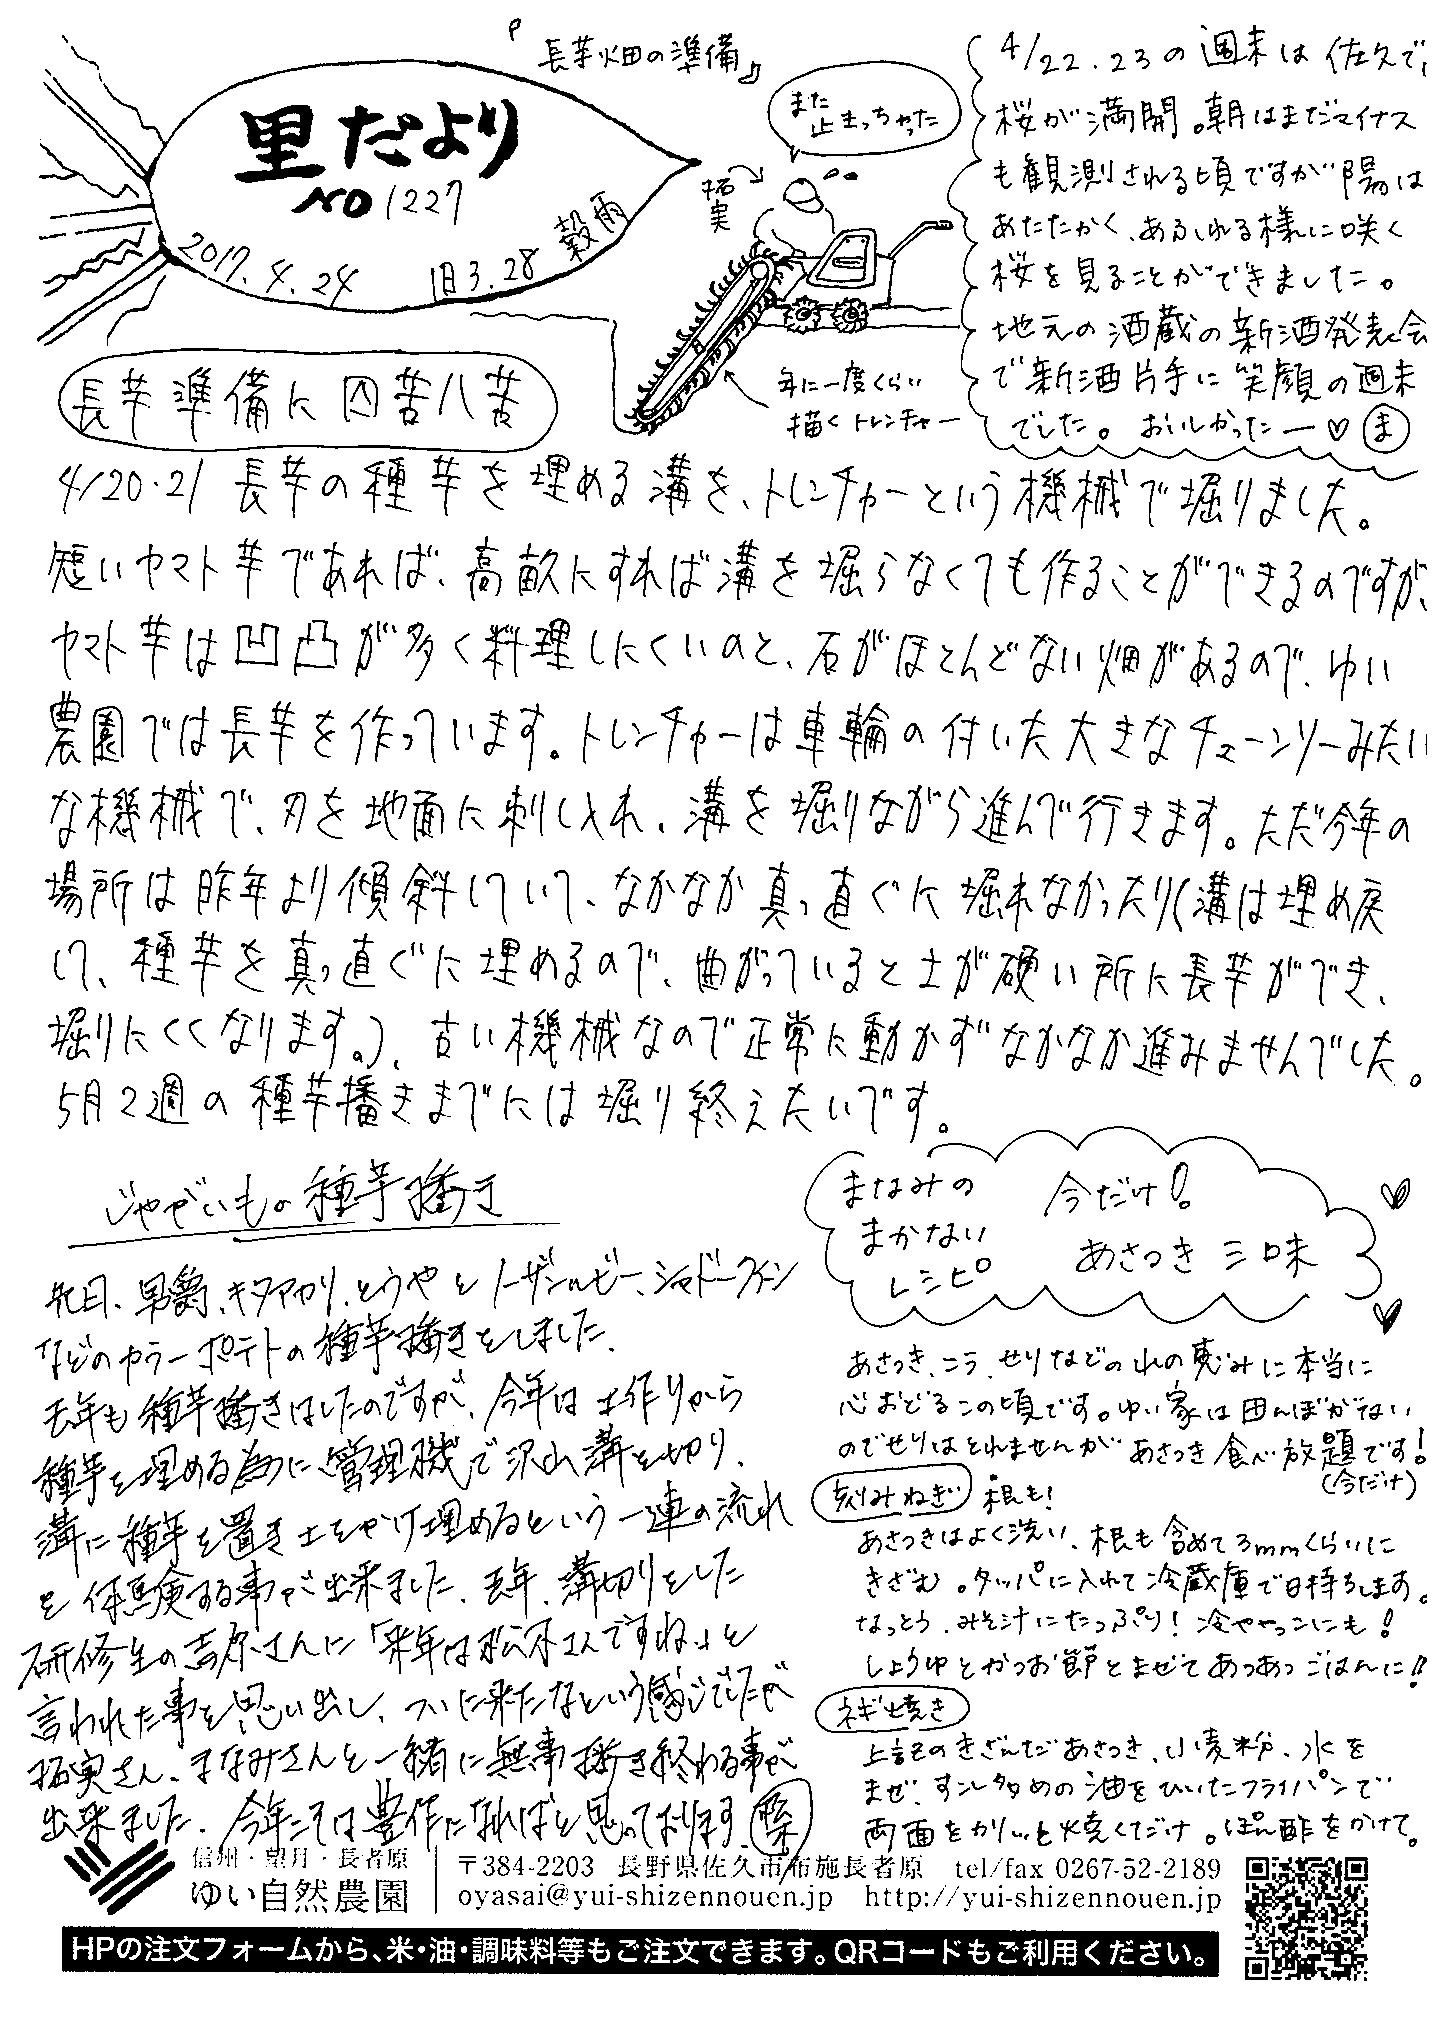 里だより
NO 1227
2017.4.24 旧3.28 穀雨
『長芋畑の準備』
また
止まっちゃった
拓実
年に一度くらい
描くトレンチャー
4/22.23の週末は佐久で、
桜が満開。朝はまだマイナス
も観測される頃ですが陽は
あたたかく、あふれる様に咲く
桜を見ることができました。
地元の酒蔵の新酒発表会
で新酒片手に笑顔の週末
でした。おいしかったー♡ ま
長芋準備に四苦八苦
4/20・21 長芋の種芋を埋める溝を、トレンチャーという機械で堀りました。
短いヤマト芋であれば、高畝にすれば溝を堀らなくても作ることができるのですが、
ヤマト芋は凹凸が多く料理しにくいのと、石がほとんどない畑があるので、ゆい
農園では長芋を作っています。トレンチャーは車輪の付いた大きなチェーンソーみたい
な機械で、刃を地面に刺し入れ、溝を堀りながら進んで行きます。ただ今年の
場所は昨年より傾斜していて、なかなか真っ直ぐに堀れなかったり(溝は埋め戻
して、種芋を真っ直ぐに埋めるので、曲がっていると土が硬い所に長芋ができ、
堀りにくくなります。)、古い機械なので正常に動かずなかなか進みませんでした。
5月2週の種芋播きまでには堀り終えたいです。
じゃがいもの種芋播き
先日、男爵、キタアカリ、とうやとノーザンルビー、シャドークイン
などのカラーポテトの種芋播きをしました。
去年も種芋播きはしたのですが、今年は土作りから
種芋を埋める為に管理機で沢山溝を切り、
溝に種芋を置き土をかけ埋めるという一連の流れ
を体験する事が出来ました。去年、溝切りをした
研修生の吉原さんに「来年は松沢さんですね」と
言われた事を思い出し、ついに来たなという感じでしたが
拓実さん、まなみさんと一緒に無事播き終わる事が
出来ました。今年こそは豊作になればと思っております。
まなみの
まかない
レシピ
今だけ!
あさつき三昧
あさつき、こう、せりなどの山の恵みに本当に
心おどるこの頃です。ゆい家は田んぼがない
のでせりはとれませんが あさつき食べ放題です!
(今だけ)
刻みねぎ 根も!
あさつきはよく洗い、根も含めて3mmくらいに
きざむ。タッパに入れて冷蔵庫で日持ちします。
なっとう、みそ汁にたっぷり! 冷ややっこにも!
しょうゆとかつお節とまぜてあつあつごはんに!!
ネギ焼き
上記のきざんだあさつき、小麦粉、水を
まぜ、すこし多めの油をひいたフライパンで
両面をカリッと焼くだけ。ぽん酢をかけて。
信州・望月・長者原
ゆい自然農園
〒384-2203 長野県佐久市布施長者原 tel/fax 0267-52-2189
oyasai@yui-shizennouen.jp http://yui-shizennouen.jp
HPの注文フォームから、米・油・調味料等もご注文できます。QRコードもご利用ください。